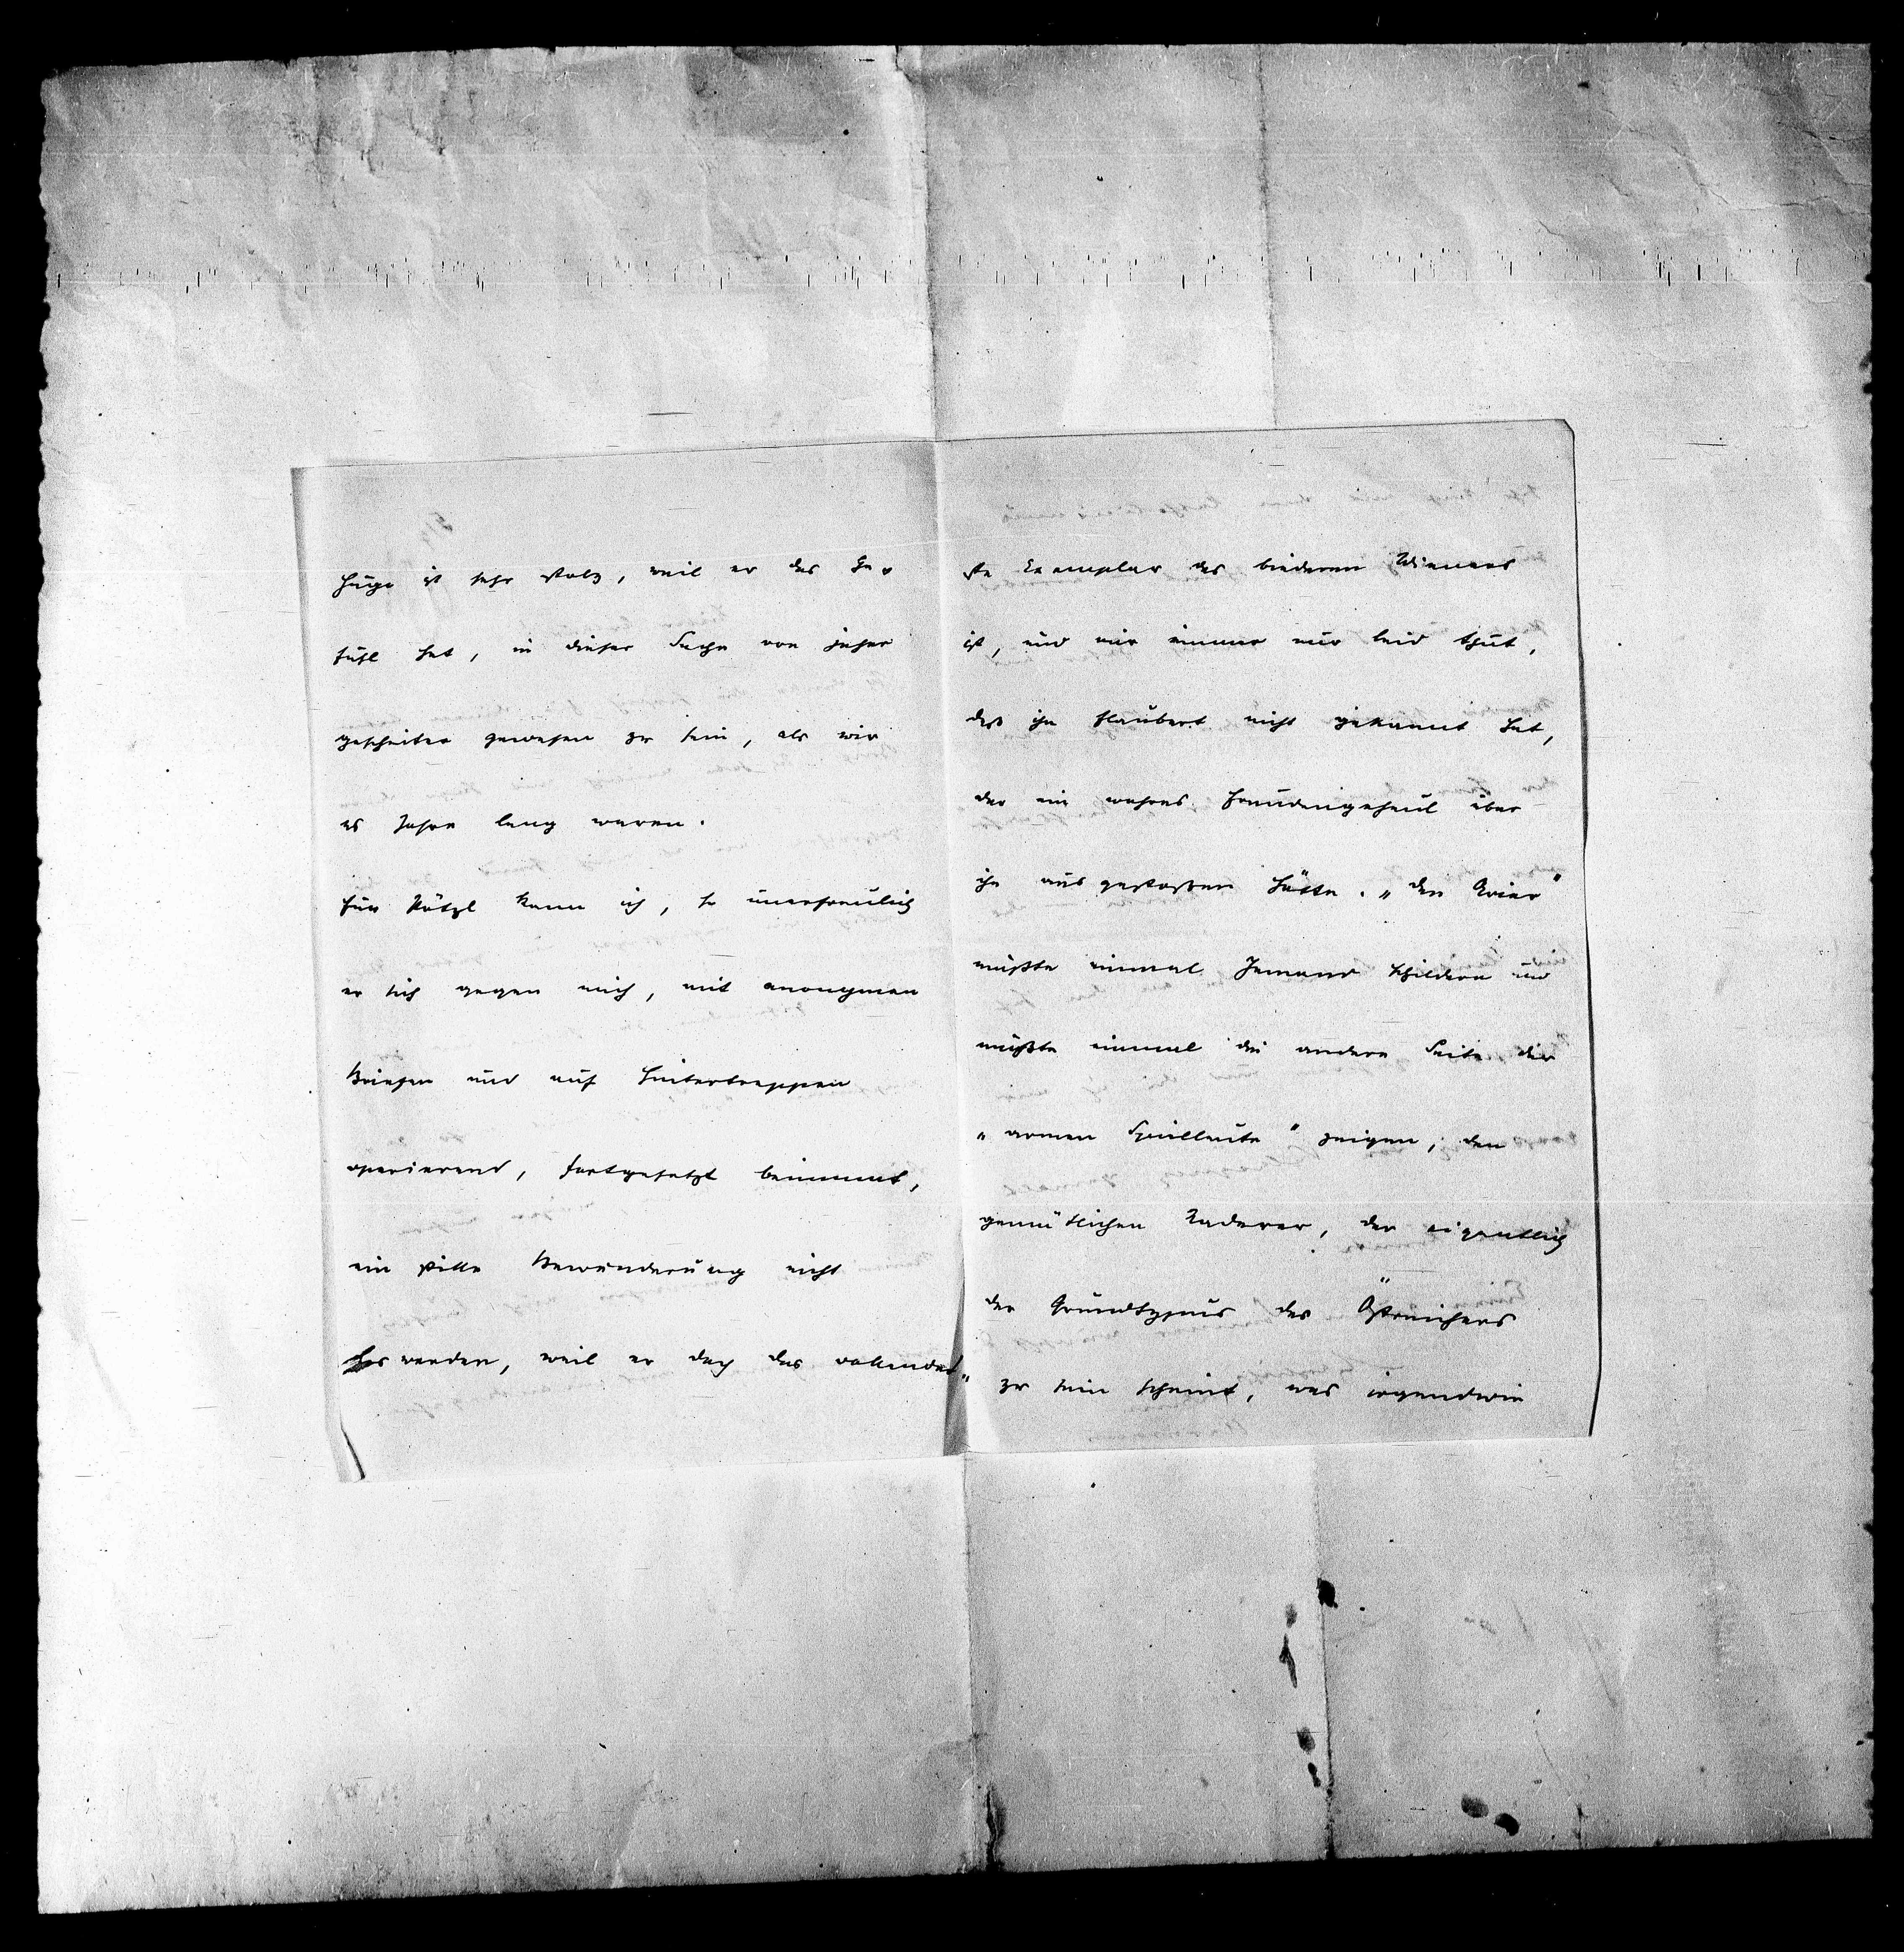 Hugo ist sehr stolz, weil er das Ge-
fühl hat, in dieser Sache von jeher
gescheiter gewesen zu sein, als wir
es Jahre lang waren.
Für Pötzl kann ich, so unerfreulich
er sich gegen mich, mit anonymen
Briefen und auf Hintertreppen
operierend, fortgesetzt benimmt,
ein stille Bewunderung nicht
los werden, weil er doch das vollendet-
ste Exemplar des biederen Wieners
ist, und mir immer nur leid thut,
daß ihn Flaubert nicht gekannt hat,
der ein wahres Freudengeheul über
ihn ausgestoßen hätte. „Den
müßte einmal Jemand schildern und
müßte einmal die andere Seite der
„armen Spielleute“ zeigen, den
gemütlichen Naderer, der eigentlich
der Grundtypus des Östreichers
zu sein scheint, was irgendwie